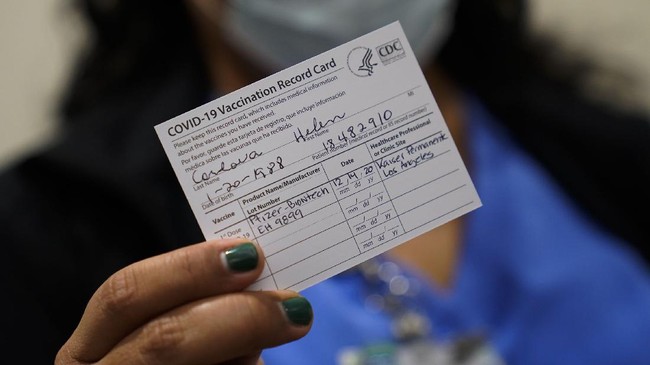 COVID-19 Vaccination Record Card
CDC
Please keep this record card, which includes medical information
about the vaccines you have received.
Por favor, guarde esta tarjeta de registro, que incluye información
médica sobre las vacunas que ha recibido.
Cordova Helen
Last Name First Name MI
-20-1988 18482910
Date of birth Patient number (medical record or IIS record number)
Vaccine Product Name/Manufacturer Date Healthcare Professional
Lot Number or Clinic Site
1st Dose Pfizer-Biontech 12/14/20 Kaiser Permanente
EH 9899 mm dd yy Los Angeles
mm dd yy
mm dd yy
mm dd yy